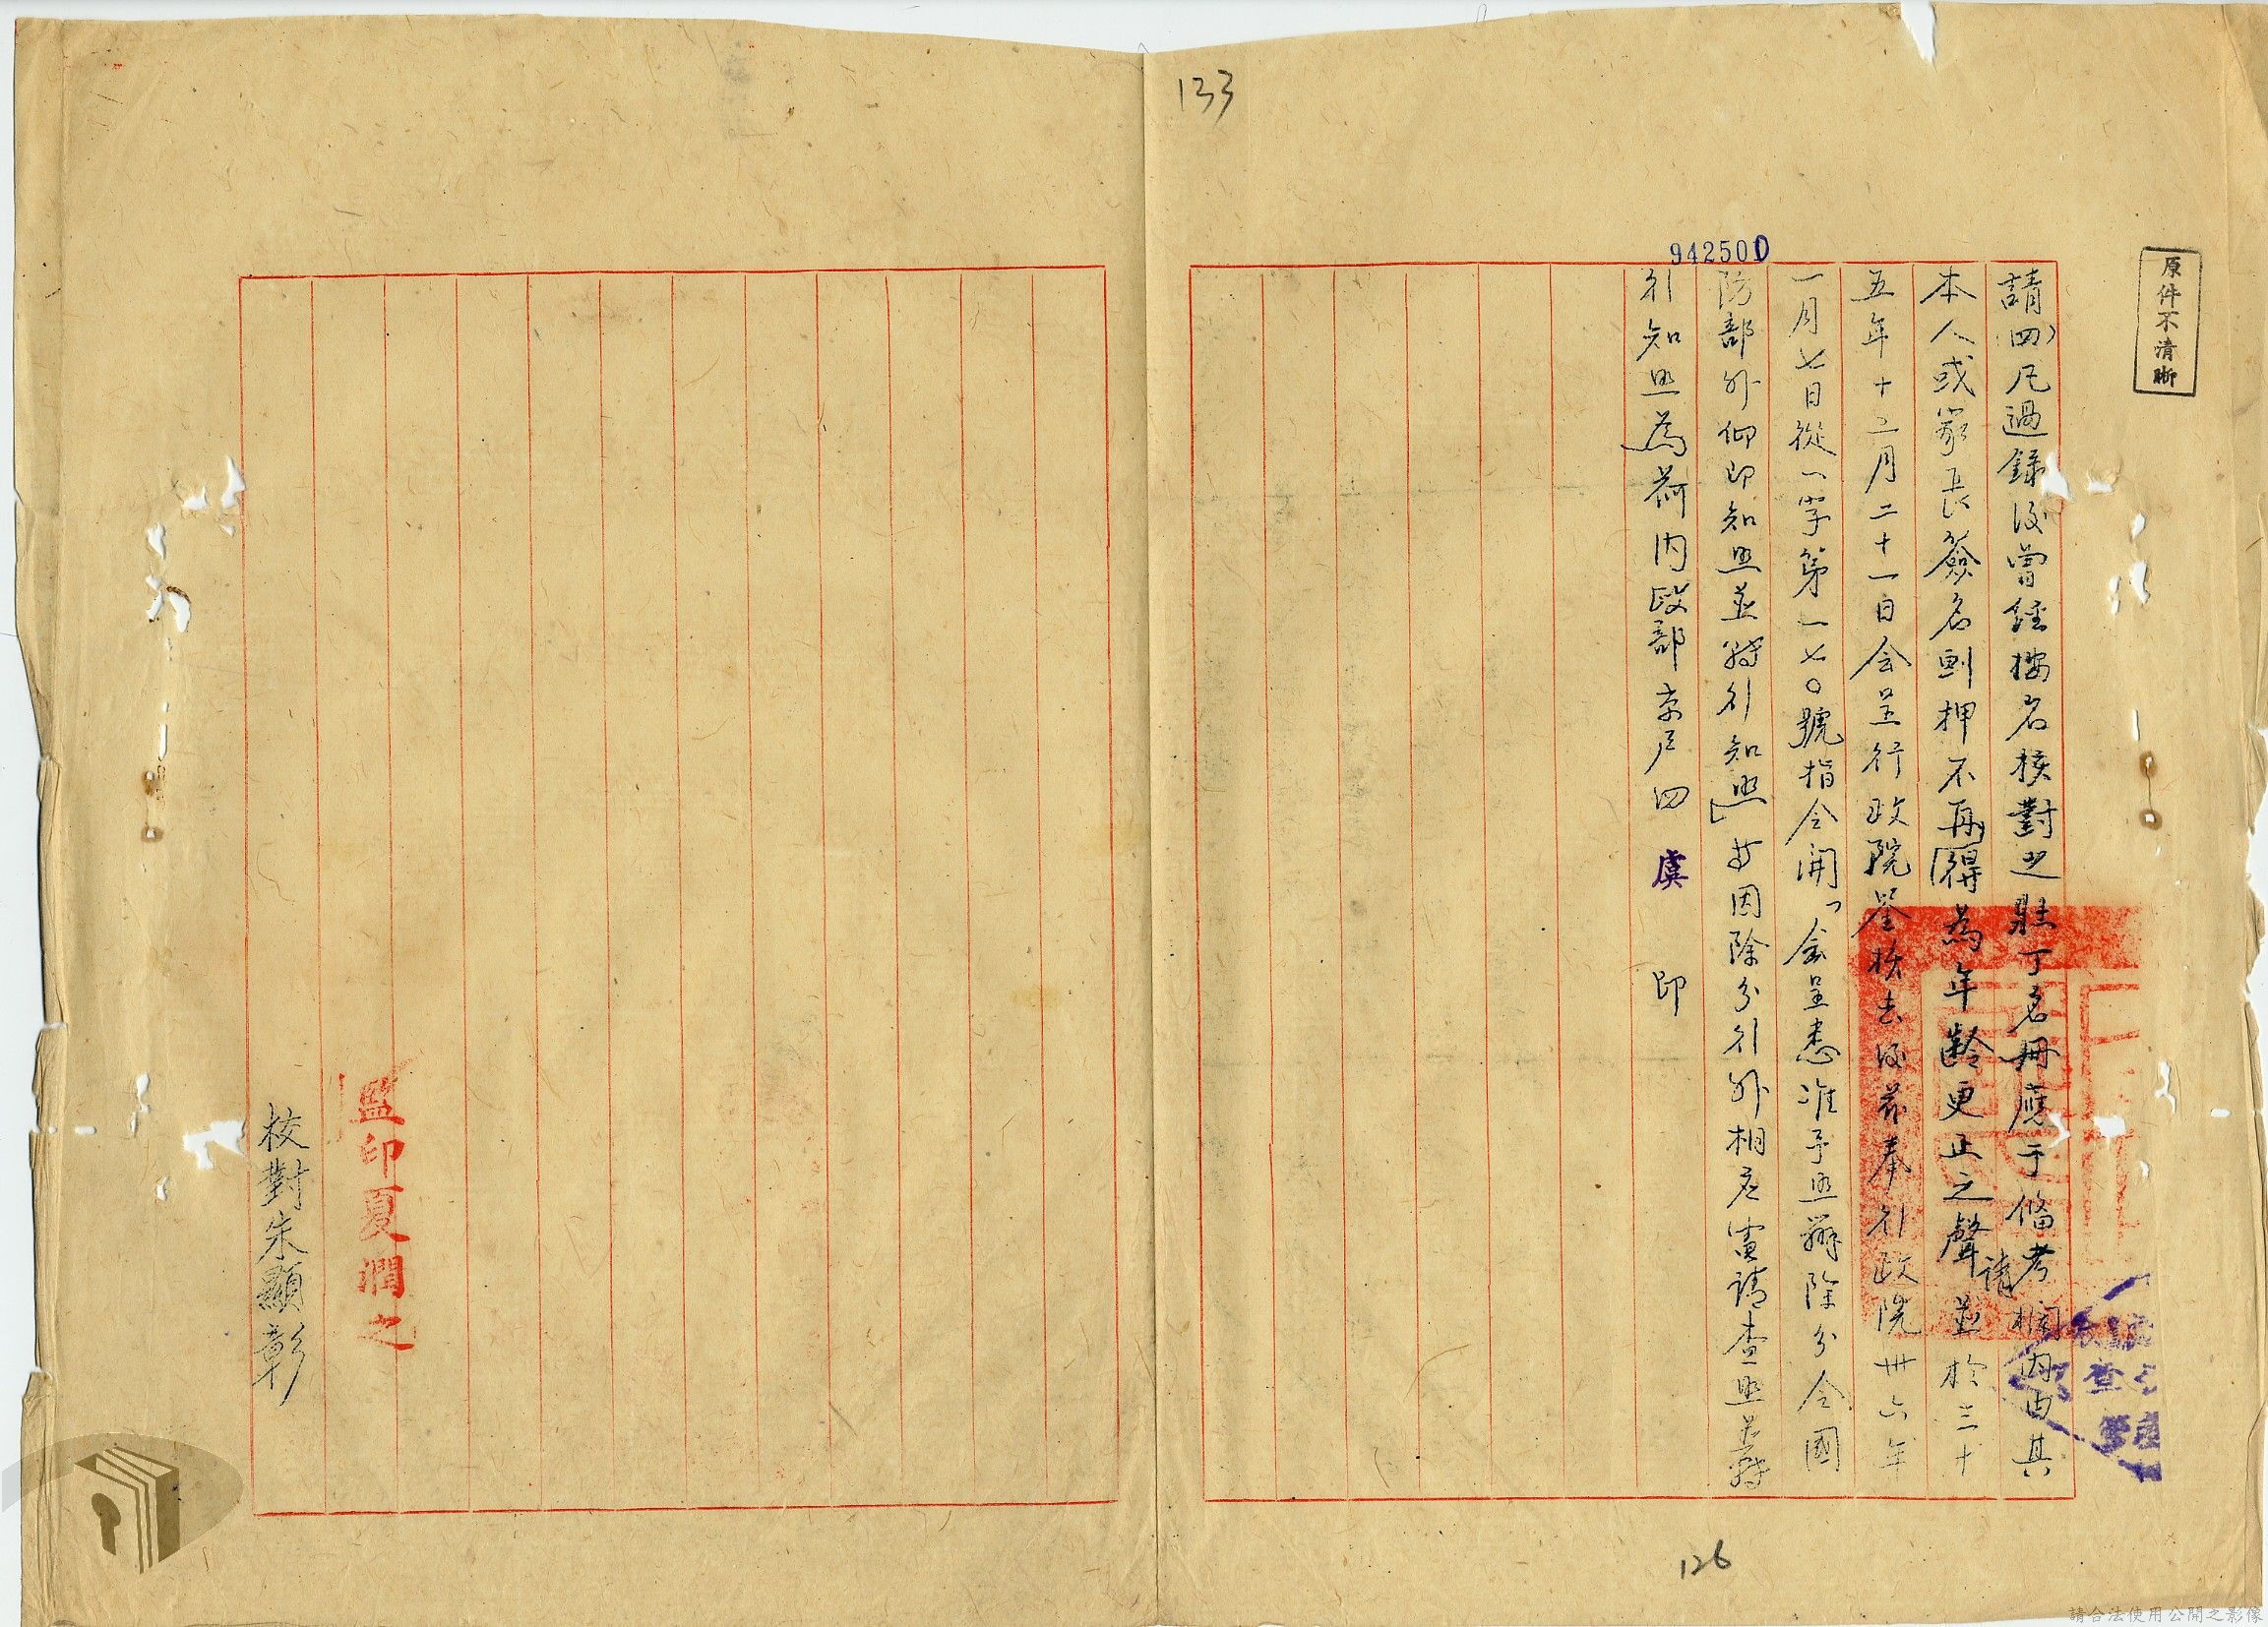 133
942500
原件不清晰
請(四)凡過錄後曾經按名核對之壯丁名冊應于備考欄內由其
本人或家長簽名劃押不再得為年齡更正之聲請並於三十
五年十二月二十一日会呈行政院鑒核去後茲奉行政院卅六年
一月七日從一字第一七〇號指令開「会呈悉准予照辦除分令國
防部外仰即知照並轉行知照」等因除分行外相應電請查照並轉
行知照為荷內政部京戶四虞印
監印夏潤之
校對朱顯彰
126
請合法使用公開之影像